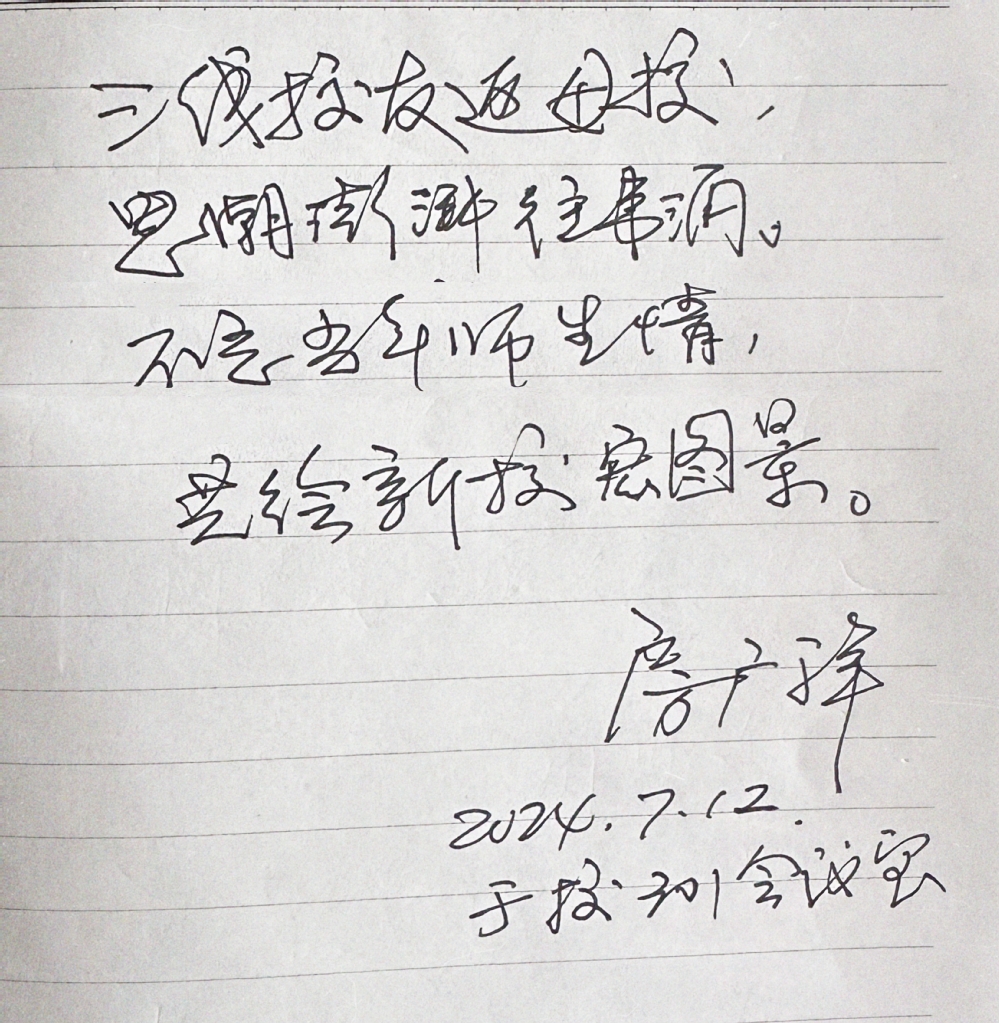 三线校友返母校,
思潮澎湃往事涌。
不忘当年师生情,
共绘新校宏图景。
房广祥
2024.7.12.
于校 会议室